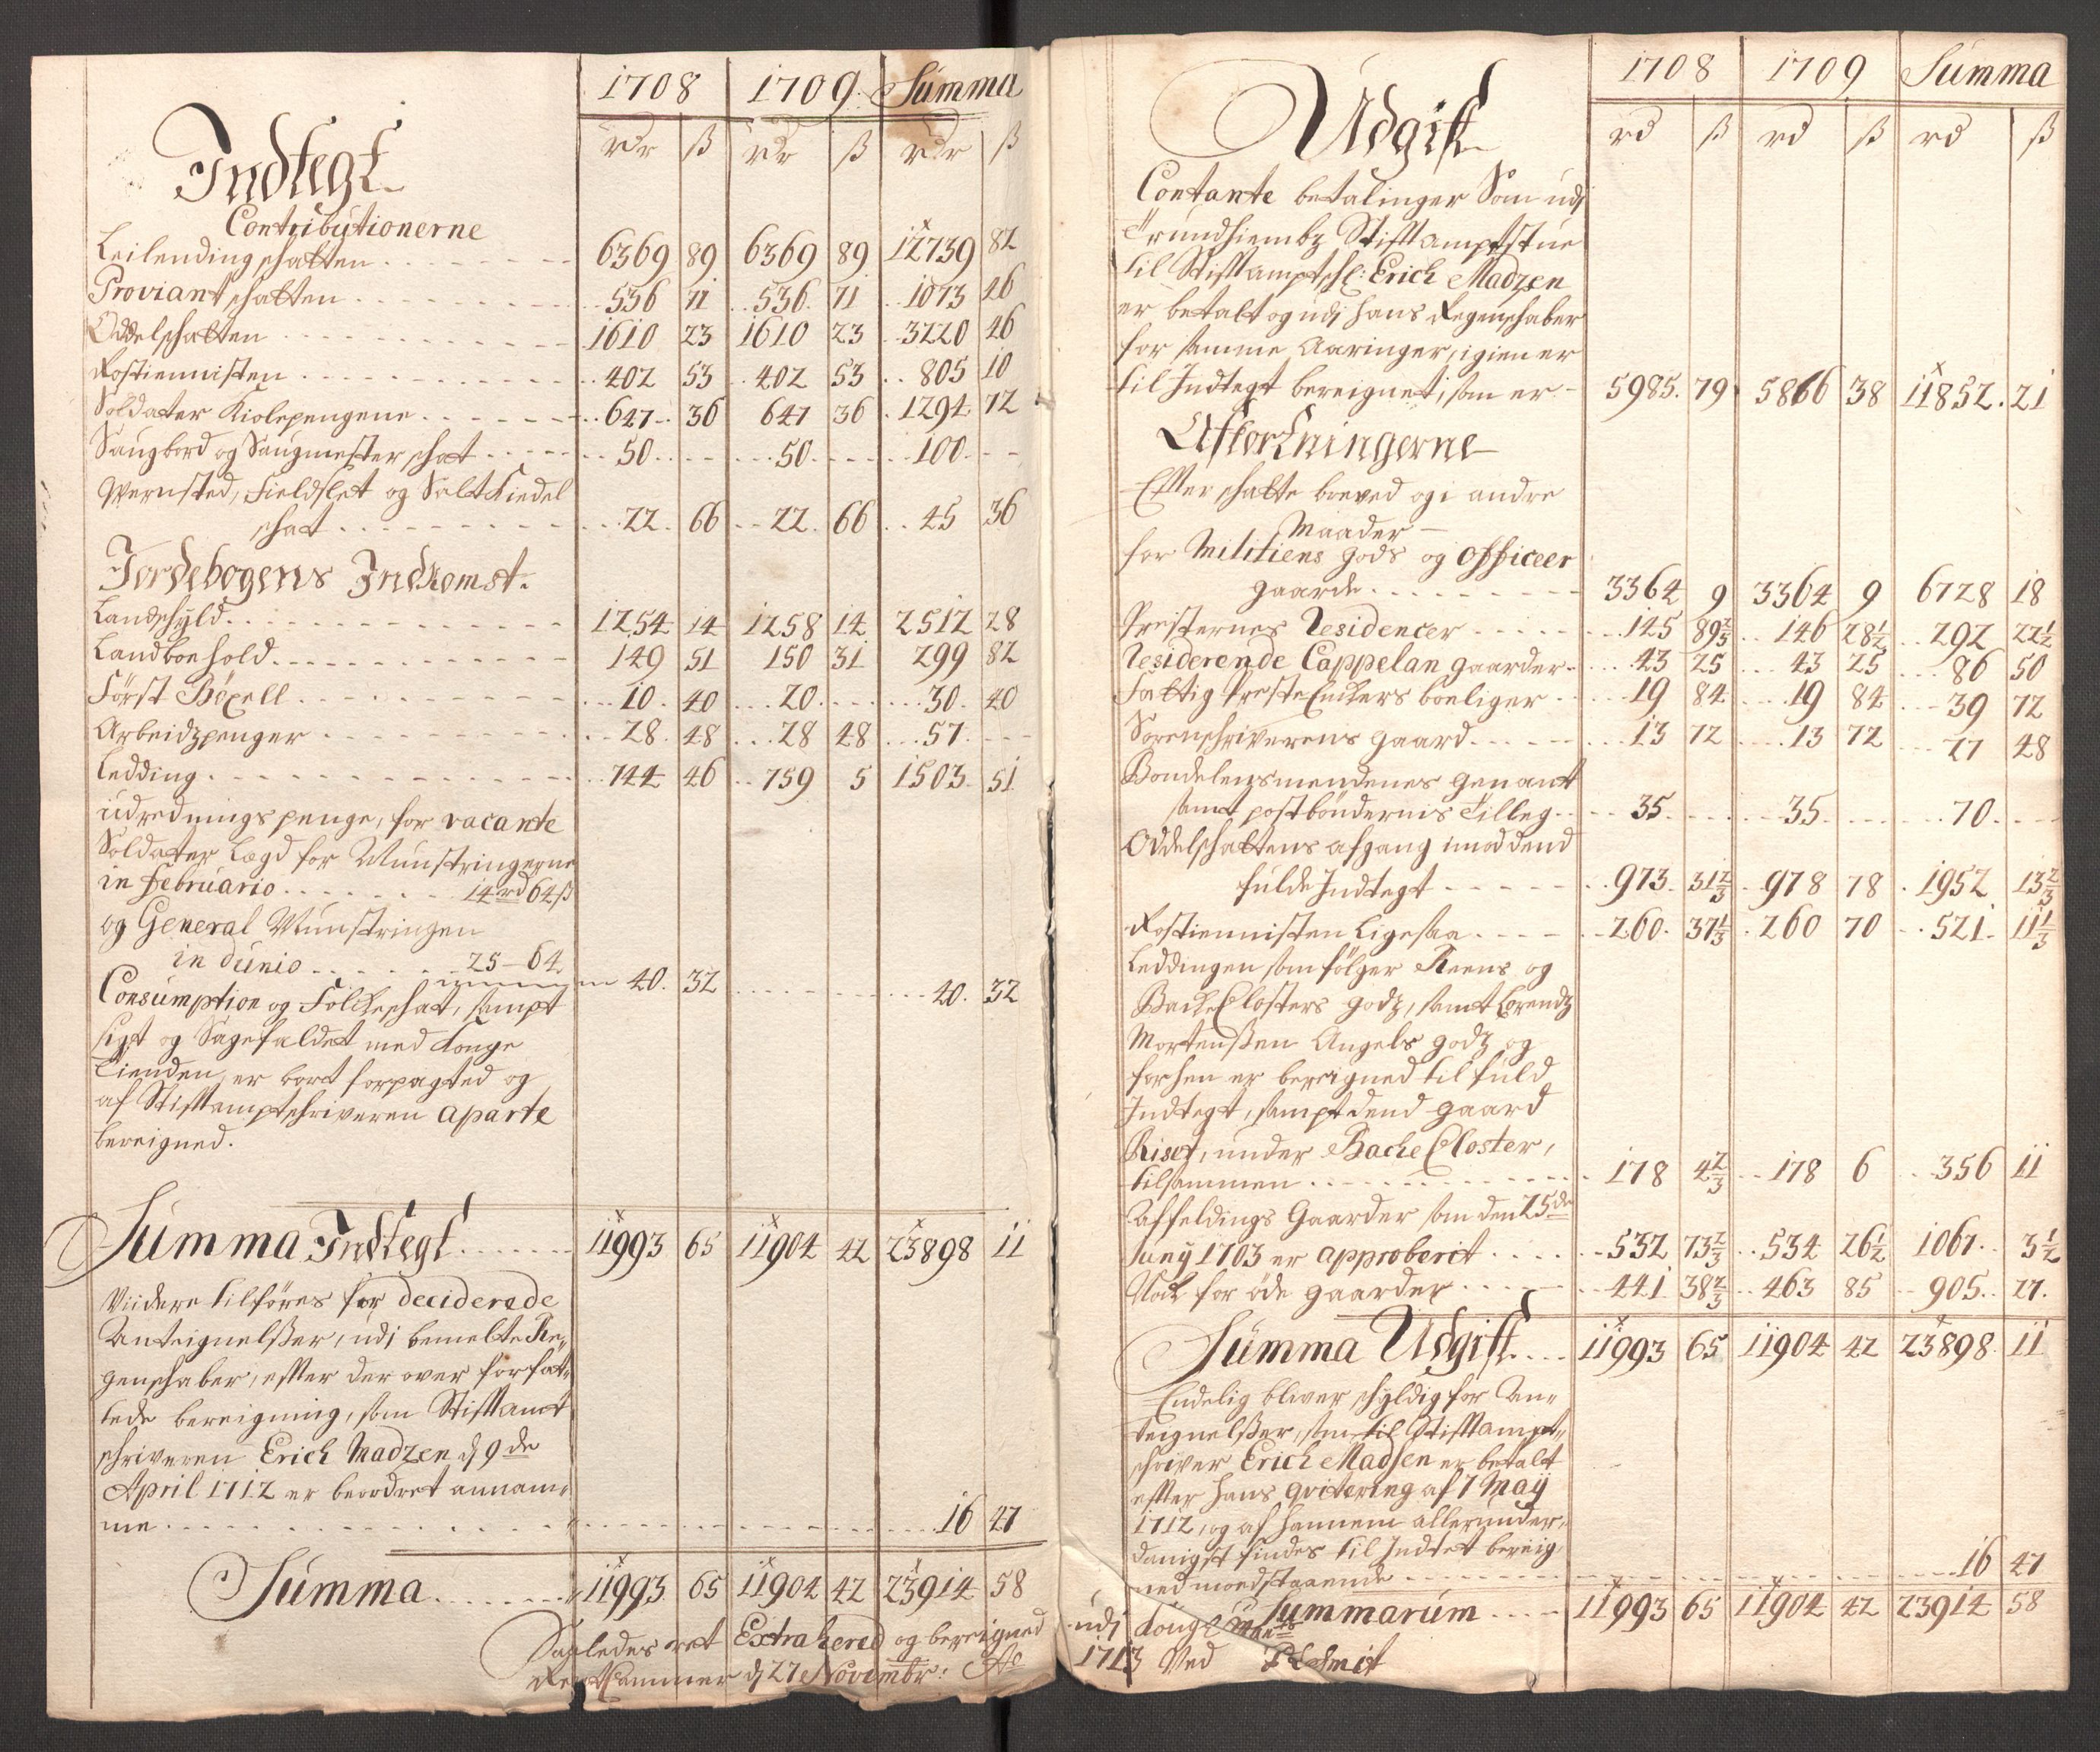 1708 1709 Summa
Indtegt
rdr ß rdr ß rdr ß
Contributionerne
Leilendingschatten 6369 89 6369 89 12739 82
Proviantschatten 536 71 536 71 1073 46
Oddelschatten 1610 23 1610 23 3220 46
Rostiennisten 402 53 402 53 805 10
Soldater Kiolepengene 647 36 647 36 1294 72
Saugbord og Saugmester schat 50 50 100
Qvernsted, Fieldslet og Salt Kiedel
schat 22 66 22 66 45 36
Jordebogens Indkomst.
Landschyld 1254 14 1258 14 2512 28
Landboehold 149 51 150 31 299 82
Först Böxell 10 40 20 30 40
Arbeidzpenger 28 48 28 48 57
Ledding 744 46 759 5 1503 51
udrednings penge, for vacante
Soldater Lægd for Munstringerne
in Februario 14 rd 64 ß
og General Munstringen
in Junio 25 - 64
40 32 40 32
Consumption og Folcheschat, sampt
sigt og Sagefaldet med Konge
Tienden er bort forpagted og
af Stiftamptschriveren aparte
bereigned.
Summa Indtegt 11993 65 11904 42 23898 11
Viidere tilföres for deciderede
Anteignelßer, udj bemelte Re,,
genschaber, efter der over forfat,,
tede bereigning, som Stiftamt
schriveren Erich Madzen d 9de
April 1712 er beordret annam,,
me 16 47
Summa 11993 65 11904 42 23914 58
Saaledes ret Extraherd og bereigned
Rente Cammer d 27 Novembr: Ao
1708 1709 Summa
Udgift
rd ß rd ß rd ß
Contante betalinger Som udj
Trundhiembz Stiftamptstue
til Stiftamptsch: Erich Madzen
er betalt og udj hans Regenschaber
for samme Aaringer, igien er
til Indtegt bereignet, som er 5985 79 5866 38 11852 21
Afkortningerne
Efter schatte breved og i andre
Maader
for Militiens gods og Officeer
gaarde 3364 9 3364 9 6728 18
Presternes Residencer 145 89 2/3 146 28 1/2 292 22 1/2
Residerende Cappelan gaarder 43 25 43 25 86 50
Fattig Preste Enchers boeliger 19 84 19 84 39 72
Sorenschriverens gaard 13 72 13 72 27 48
Bondelensmendenes genant
samt postböndernis Tilleg 35 35 70
Oddelschattens afgang imod dend
fulde Indtegt 973 31 2/3 978 78 1952 13 2/3
Rostiennisten Ligesaa 260 37 1/3 260 70 521 11 1/3
Leddingen som fölger Reens og
Bache Closters godz, samt Lorendz
Mortenßen Angels godz og
forhen er bereigned til fuld
Indtegt, sampt dend gaard
Rises, under Bache Closter,
tilsammen 178 4 2/3 178 6 356 11
Affeldings Gaarder som den 25de
Junij 1703 er approberit 532 73 2/3 534 26 1/2 1067 3 1/2
Nock for öde gaarder 441 38 2/3 463 85 905 27
Summa Udgift 11993 65 11904 42 23898 11
Endelig bliver schyldig for An,,
teignelßer, som til Stiftampt,,
schriver Erich Madsen er betalt
efter hans qvitering af 7 Maij
1712, og af hannem allerunder,,
danigst findes til Indtet bereig,,
ned modstaaende 16 47
Summarum 11993 65 11904 42 23914 58
udj Kongl Mayts
1713 Ved